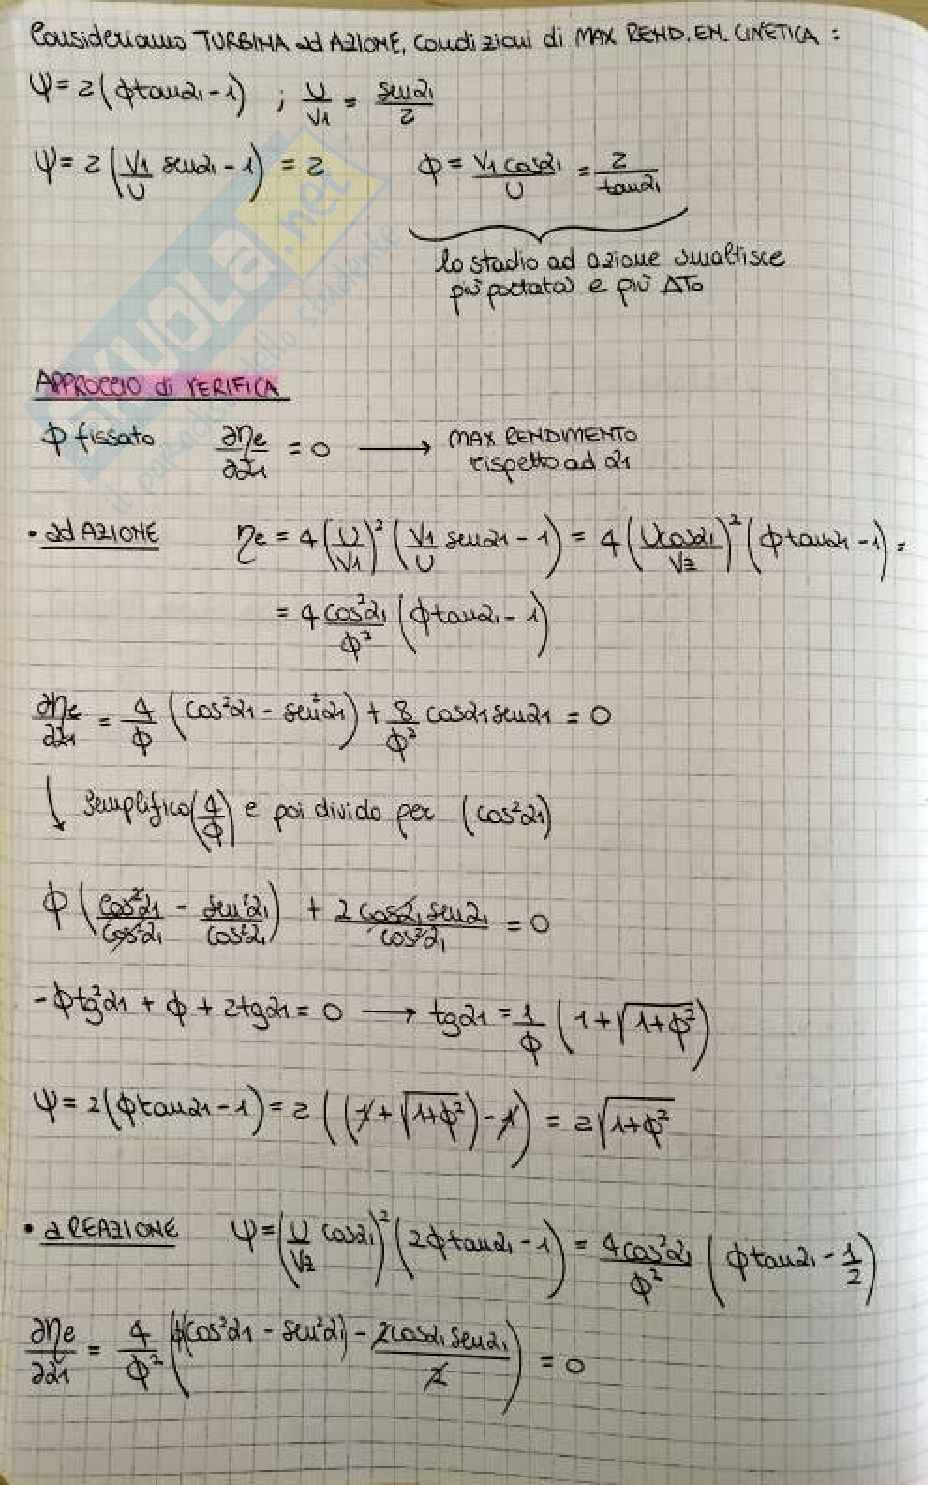 Consideriamo TURBINA ad AZIONE, condizioni di MAX REND. EN. CINETICA :
ψ = 2(ϕtanα₁ - 1) ; U/V₁ = senα₁/2
ψ = 2(V₁/U senα₁ - 1) = 2 ϕ = V₁cosα₁/U = 2/tanα₁
lo stadio ad azione smaltisce
più portata e più ΔT₀
APPROCCIO di VERIFICA
ϕ fissato ∂ηe/∂α₁ = 0 → MAX RENDIMENTO
rispetto ad α₁
• ad AZIONE ηe = 4(U/V₁)²(V₁/U senα₁ - 1) = 4(Ucosα₁/Vz)²(ϕtanα₁ - 1) =
= 4 cos²α₁/ϕ² (ϕtanα₁ - 1)
∂ηe/∂α₁ = 4/ϕ (cos²α₁ - sen²α₁) + 8/ϕ² cosα₁senα₁ = 0
↓ semplifico (4/ϕ) e poi divido per (cos²α₁)
ϕ(cos²α₁/cos²α₁ - sen²α₁/cos²α₁) + 2cosα₁senα₁/cos²α₁ = 0
-ϕtg²α₁ + ϕ + 2tgα₁ = 0 → tgα₁ = 1/ϕ (1 + √(1+ϕ²))
ψ = 2(ϕtanα₁ - 1) = 2((1 + √(1+ϕ²)) - 1) = 2√(1+ϕ²)
• a REAZIONE ψ = (U/Vz cosα₁)²(2ϕtanα₁ - 1) = 4cos²α₁/ϕ² (ϕtanα₁ - 1/2)
∂ηe/∂α₁ = 4/ϕ² (ϕ(cos²α₁ - sen²α₁) - 2cosα₁senα₁/2) = 0